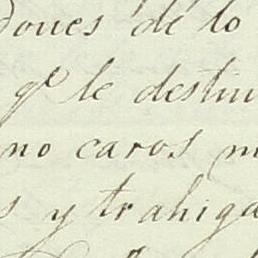 dones de lo
qᵉ le destin
no caros m
s y trahiga